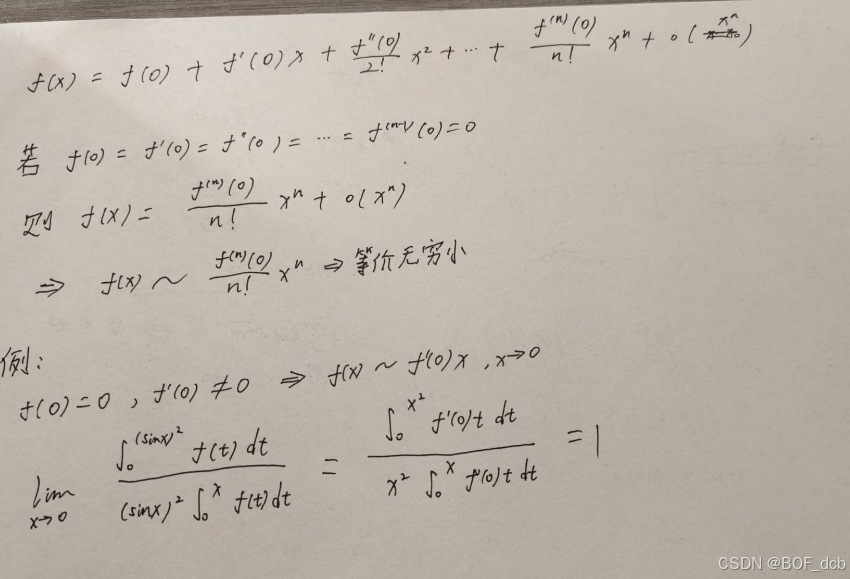 f(x) = f(0) + f'(0)x + f''(0)/2! x² + … + f⁽ⁿ⁾(0)/n! xⁿ + o(xⁿ)
若 f(0) = f'(0) = f''(0) = … = f⁽ⁿ⁻¹⁾(0) = 0
则 f(x) = f⁽ⁿ⁾(0)/n! xⁿ + o(xⁿ)
⇒ f(x) ~ f⁽ⁿ⁾(0)/n! xⁿ ⇒ 等价无穷小
例:
f(0)=0 , f'(0) ≠ 0 ⇒ f(x) ~ f'(0)x , x→0
lim x→0 ∫₀^(sinx)² f(t) dt / (sinx)² ∫₀^x f(t)dt = ∫₀^x² f'(0)t dt / x² ∫₀^x f'(0)t dt = 1
CSDN @BOF_dcb